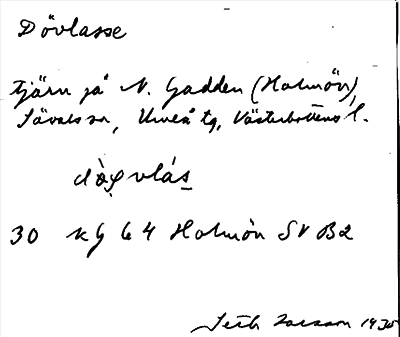 Dövlasse
tjärn på N. Gadden (Holmön),
Sävars sn, Umeå tg, Västerbottens l.
30 kg 64 Holmön SV B2
Seth 1935